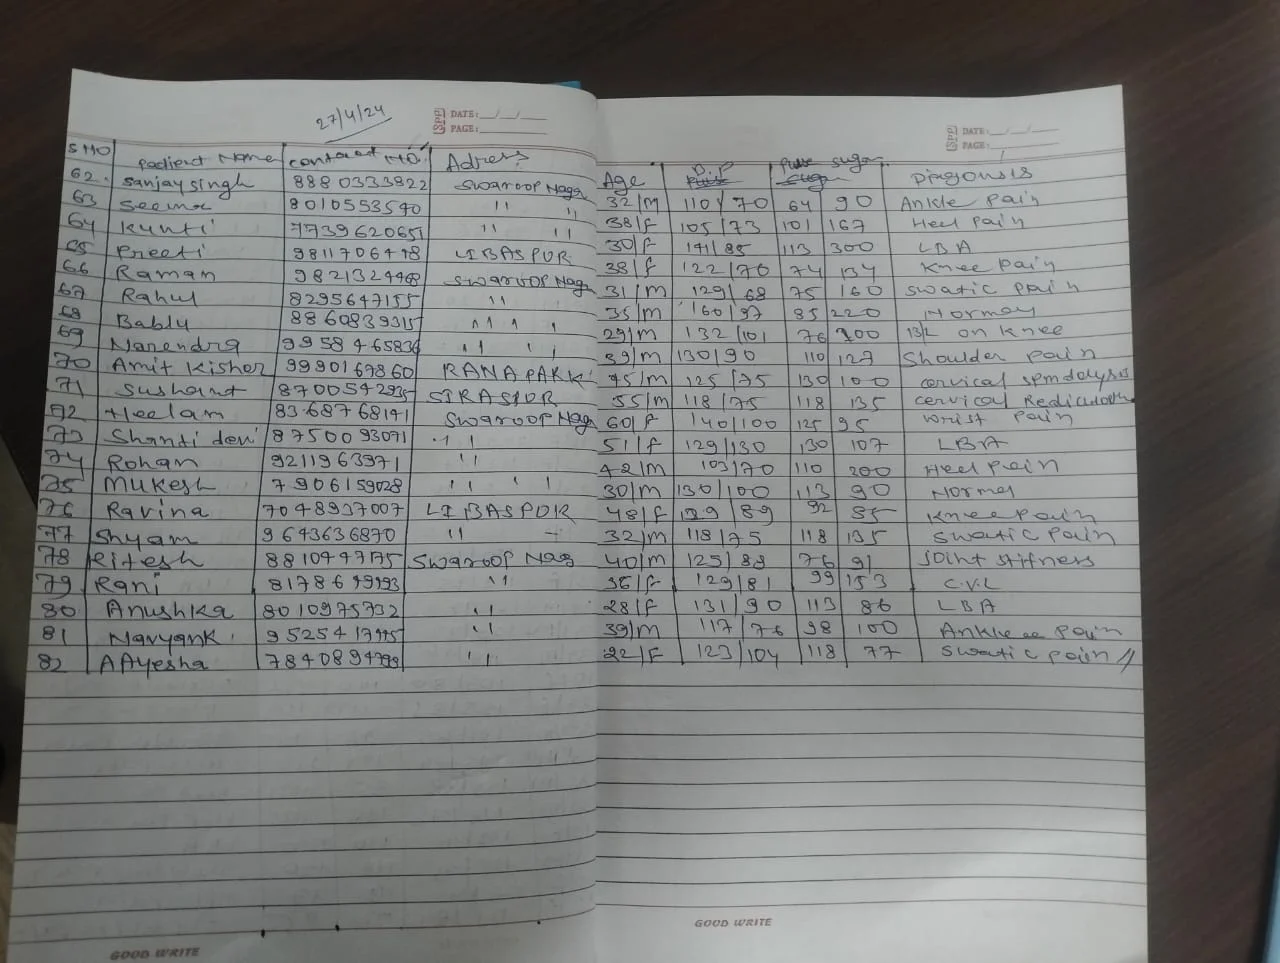 27/4/24
DATE: __/__/__
PAGE:
DATE: __/__/__
PAGE:
S NO Padient Name contact NO. Adress Age B.P Pulse sugar Diagonsis
62. Sanjay singh 8880333922 Swaroop Naga 32/M 110/70 64 90 Ankle Pain
63 Seema 8010553540 " " 38/f 105/73 101 167 Heel Pain
64 Kunti 7739620651 " " 30/f 141/85 113 300 LBA
65 Preeti 9811706448 LIBASPUR 38/f 122/76 74 134 Knee Pain
66 Raman 9821324468 Swaroop Naga 31/M 129/68 75 160 Swatic Pain
67 Rahul 8295647155 " 35/M 160/97 85 220 Normay
68 Bablu 8860839315 " " 29/M 132/101 76 on Knee
69 Narendra 9958465836 " " 39/M 130/90 110 127 Shoulder Pain
70 Amit Kishor 9990167860 RANA PARK 45/M 125/75 130 100 cervical
71 Sushant SIRASPUR 55/M 118/75 118 135 cervical
72 Heelam 8368768141 Swaroop Naga 60/f 140/100 125 95 wrist Pain
73 Shanti devi 8750093071 " 51/f 129/130 130 107 LBA
74 Rohan 9211963971 " 42/M 103/70 110 200 Heel Pain
75 Mukesh 7906159028 " " 30/M 130/100 113 90 Normay
76 Ravina 7048937007 LIBASPUR 48/f 129/89 92 85 Knee Pain
77 Shyam 9643636870 " 32/M 118/75 118 135 Swatic Pain
78 Ritesh 881044775 Swaroop Nag 40/M 125/88 76 91 Joint stiffness
79 Rani " 36/f 129/81 99 153 C.V.L
80 Anushka 8010975732 " 28/f 131/90 113 86 LBA
81 Navyank " 39/M 117/76 98 100 Ankle Pain
82 AAyesha " 22/F 123/104 118 77 Swatic Pain //
GOOD WRITE
GOOD WRITE